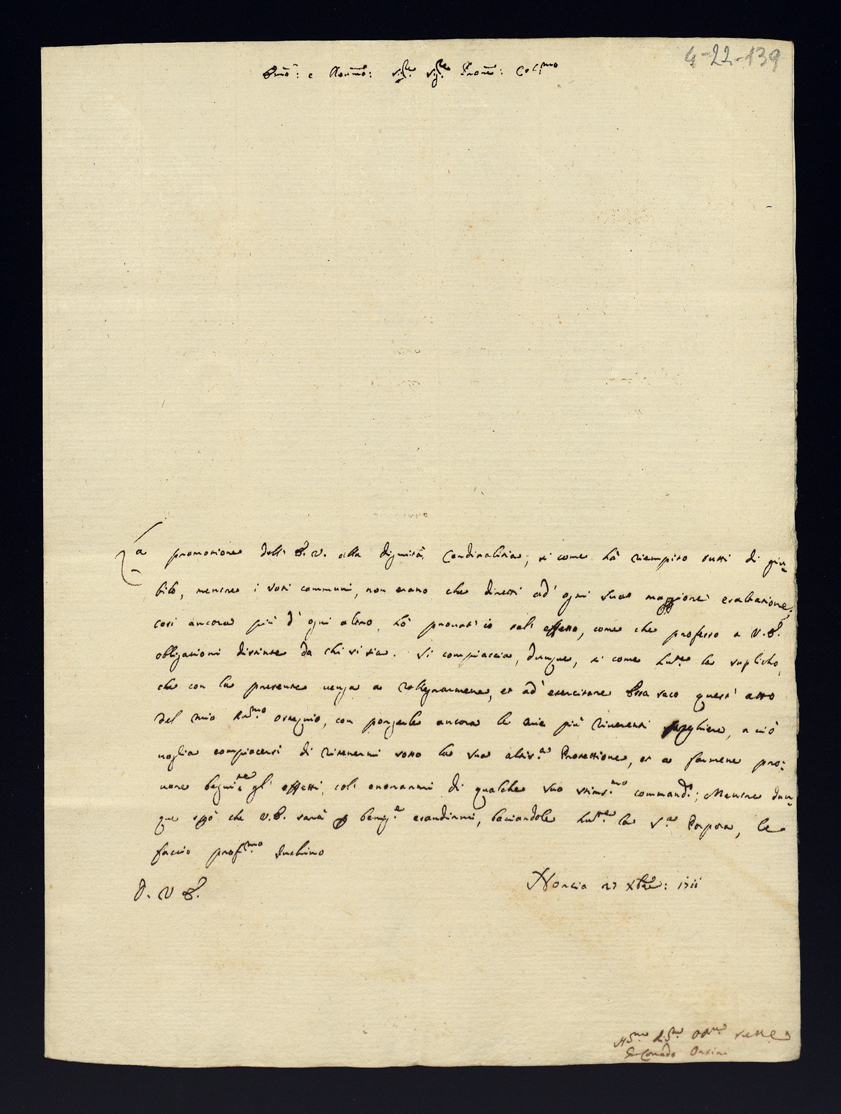 4-22-139
Em̃o: e Rev̄mo: Sig.re Sig.re Prone: Col.mo
La promotione dell' E. V. alla dignità Cardinalitia, si come hà riempito tutti di giu-
bilo, mentre i voti communi, non erano che diretti ad' ogni sua maggiore esaltatione;
così ancora più d' ogni altro, hà provati io tali effetto, come che professo a V. E.
obligationi distinte da chi si sia. Si compiaccia, dunque, si come hum.te la suplicho,
che con la presente venga a rallegrarmene, et ad' esercitare seco quest' atto
del mio hu.mo ossequio, con porgerle ancora le mie più riverenti preghiere, a ciò
voglia compiacersi di ritenermi sotto la sua alt.a Protettione, et a farmene pro-
vare gli effetti, coll' onorarmi di qualche suo stim.mo commando; Mentre dun-
que che V. E. sarà p benig.a esaudirmi, baciandole hum.te la S.a Porpora, le
faccio prof.mo inchino
D. V. E.
Norcia 27 Xbre: 1711
H.mo D.mo Obl.mo
Corrado Orsini